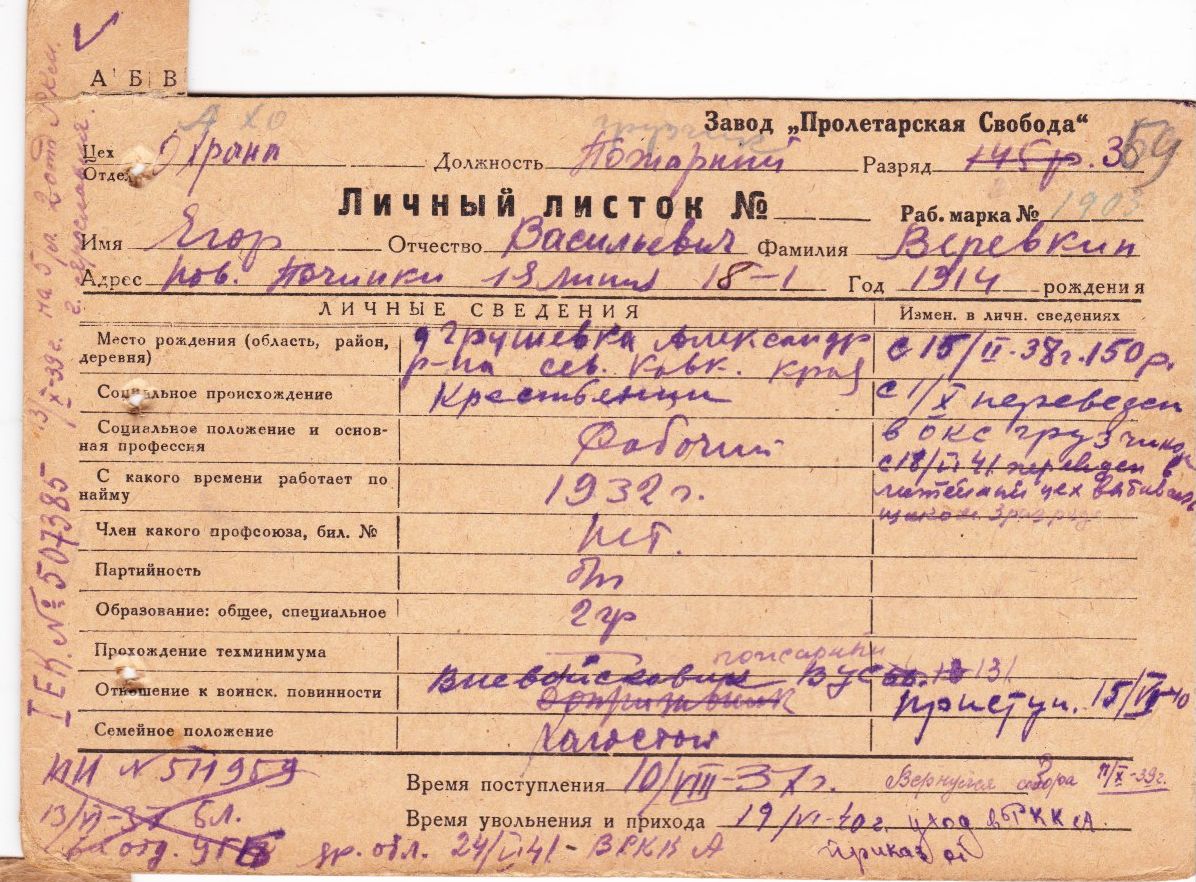 А Б В
АХО
грузчик
Завод „Пролетарская Свобода“
Цех Отдел Охрана Должность Пожарный Разряд 145 р. 3 59
Личный листок №
Раб. марка № 1903
Имя Егор Отчество Васильевич Фамилия Веревкин
Адрес пов. Починки 13 линия 18-1 Год 1914 рождения
ЛИЧНЫЕ СВЕДЕНИЯ Измен. в личн. сведениях
Место рождения (область, район, деревня) д Грушевка Александр р-на сев. Кавк. края с 15/II-38г. 150 р.
Социальное происхождение Крественин с 1/X переведен
Социальное положение и основная профессия Рабочий в ОКС грузчиком
С какого времени работает по найму 1932 г. с 18/VI 41 переведен в литейный цех
Член какого профсоюза, бил. № нет. 3 разряда
Партийность бп
Образование: общее, специальное 2 гр
Прохождение техминимума — пожарный
Отношение к воинск. повинности Вневойсковик ВУС 131 приступ. 15/VII-40
Семейное положение Халостой
Время поступления 10/VIII-37г. Вернулся 11/X-39г.
Время увольнения и прихода 19/VI-40г. уход в РККА
приказ
24/VI 41 - В РККА
ПП № 511959
13/VI-37 Бл.
отд.
IЕК. № 507385 13/X-39г. на 5
г. Ярославля.